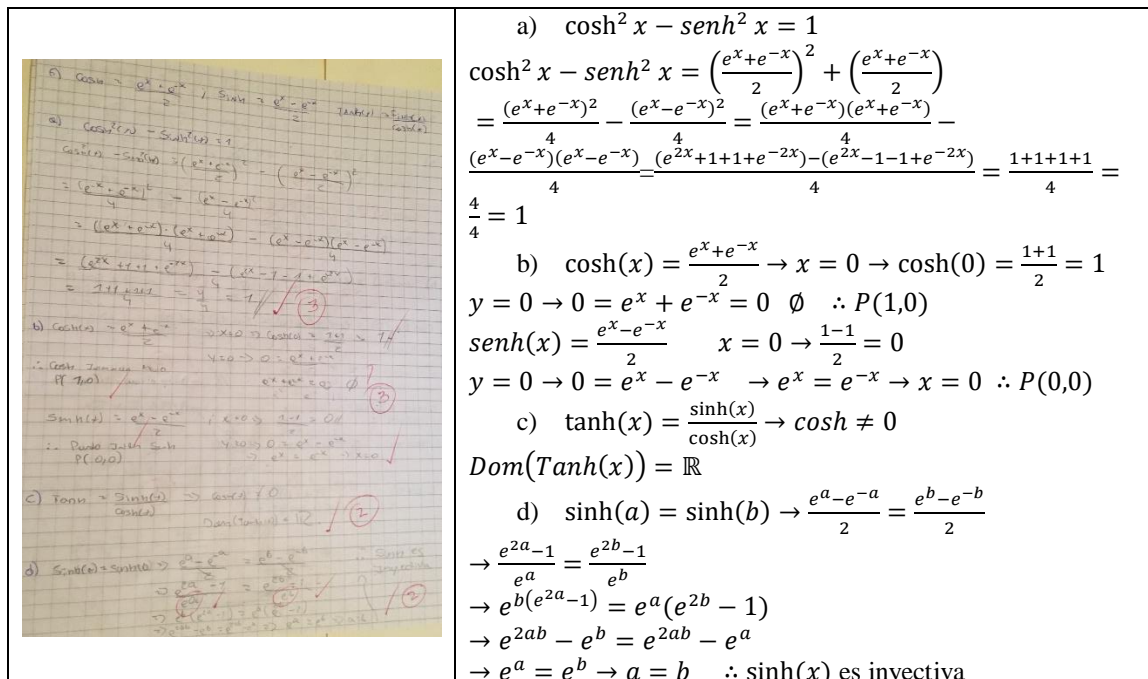 6) Cosh = \frac{e^x + e^{-x}}{2} , Sinh = \frac{e^x - e^{-x}}{2} Tanh(x) = \frac{Sinh(x)}{Cosh(x)}
a) Cosh²(x) - Sinh²(x) = 1
Cosh²(x) - Sinh²(x) = (\frac{e^x + e^{-x}}{2})² - (\frac{e^x - e^{-x}}{2})²
= \frac{(e^x + e^{-x})²}{4} - \frac{(e^x - e^{-x})²}{4}
= \frac{(e^x + e^{-x}) · (e^x + e^{-x})}{4} - \frac{(e^x - e^{-x})(e^x - e^{-x})}{4}
= \frac{(e^{2x} + 1 + 1 + e^{-2x}) - (e^{2x} - 1 - 1 + e^{-2x})}{4}
= \frac{1+1+1+1}{4} = \frac{4}{4} = 1 3
b) Cosh(x) = \frac{e^x + e^{-x}}{2} x=0 ⇒ Cosh(0) = \frac{1+1}{2} = 1
y=0 → 0 = \frac{e^x + e^{-x}}{2}
∴ Cosh
P(1,0) e^x + e^{-x} = 0 ∅ 3
Sinh(x) = \frac{e^x - e^{-x}}{2} , x=0 ⇒ \frac{1-1}{2} = 0
∴ Punto Sinh y=0 ⇒ 0 = e^x - e^{-x}
P(0,0) ⇒ e^x = e^{-x} ⇒ x=0
c) Tanh = \frac{Sinh(x)}{Cosh(x)} ⇒ Cosh(x) ≠ 0
Dom(Tanh(x)) = ℝ 2
d) Sinh(a) = Sinh(b) ⇒ \frac{e^a - e^{-a}}{2} = \frac{e^b - e^{-b}}{2} ∴ Sinh es inyectiva
⇒ \frac{e^{2a} - 1}{e^a} = \frac{e^{2b} - 1}{e^b} 2
a) cosh² x − senh² x = 1
cosh² x − senh² x = (\frac{e^x+e^{−x}}{2})² + (\frac{e^x+e^{−x}}{2})
= \frac{(e^x+e^{−x})²}{4} − \frac{(e^x−e^{−x})²}{4} = \frac{(e^x+e^{−x})(e^x+e^{−x})}{4} −
\frac{(e^x−e^{−x})(e^x−e^{−x})}{4} = \frac{(e^{2x}+1+1+e^{−2x})−(e^{2x}−1−1+e^{−2x})}{4} = \frac{1+1+1+1}{4} =
\frac{4}{4} = 1
b) cosh(x) = \frac{e^x+e^{−x}}{2} → x = 0 → cosh(0) = \frac{1+1}{2} = 1
y = 0 → 0 = e^x + e^{−x} = 0 ∅ ∴ P(1,0)
senh(x) = \frac{e^x−e^{−x}}{2} x = 0 → \frac{1−1}{2} = 0
y = 0 → 0 = e^x − e^{−x} → e^x = e^{−x} → x = 0 ∴ P(0,0)
c) tanh(x) = \frac{sinh(x)}{cosh(x)} → cosh ≠ 0
Dom(Tanh(x)) = ℝ
d) sinh(a) = sinh(b) → \frac{e^a−e^{−a}}{2} = \frac{e^b−e^{−b}}{2}
→ \frac{e^{2a}−1}{e^a} = \frac{e^{2b}−1}{e^b}
→ e^{b(e^{2a}−1)} = e^a(e^{2b} − 1)
→ e^{2ab} − e^b = e^{2ab} − e^a
→ e^a = e^b → a = b ∴ sinh(x) es inyectiva